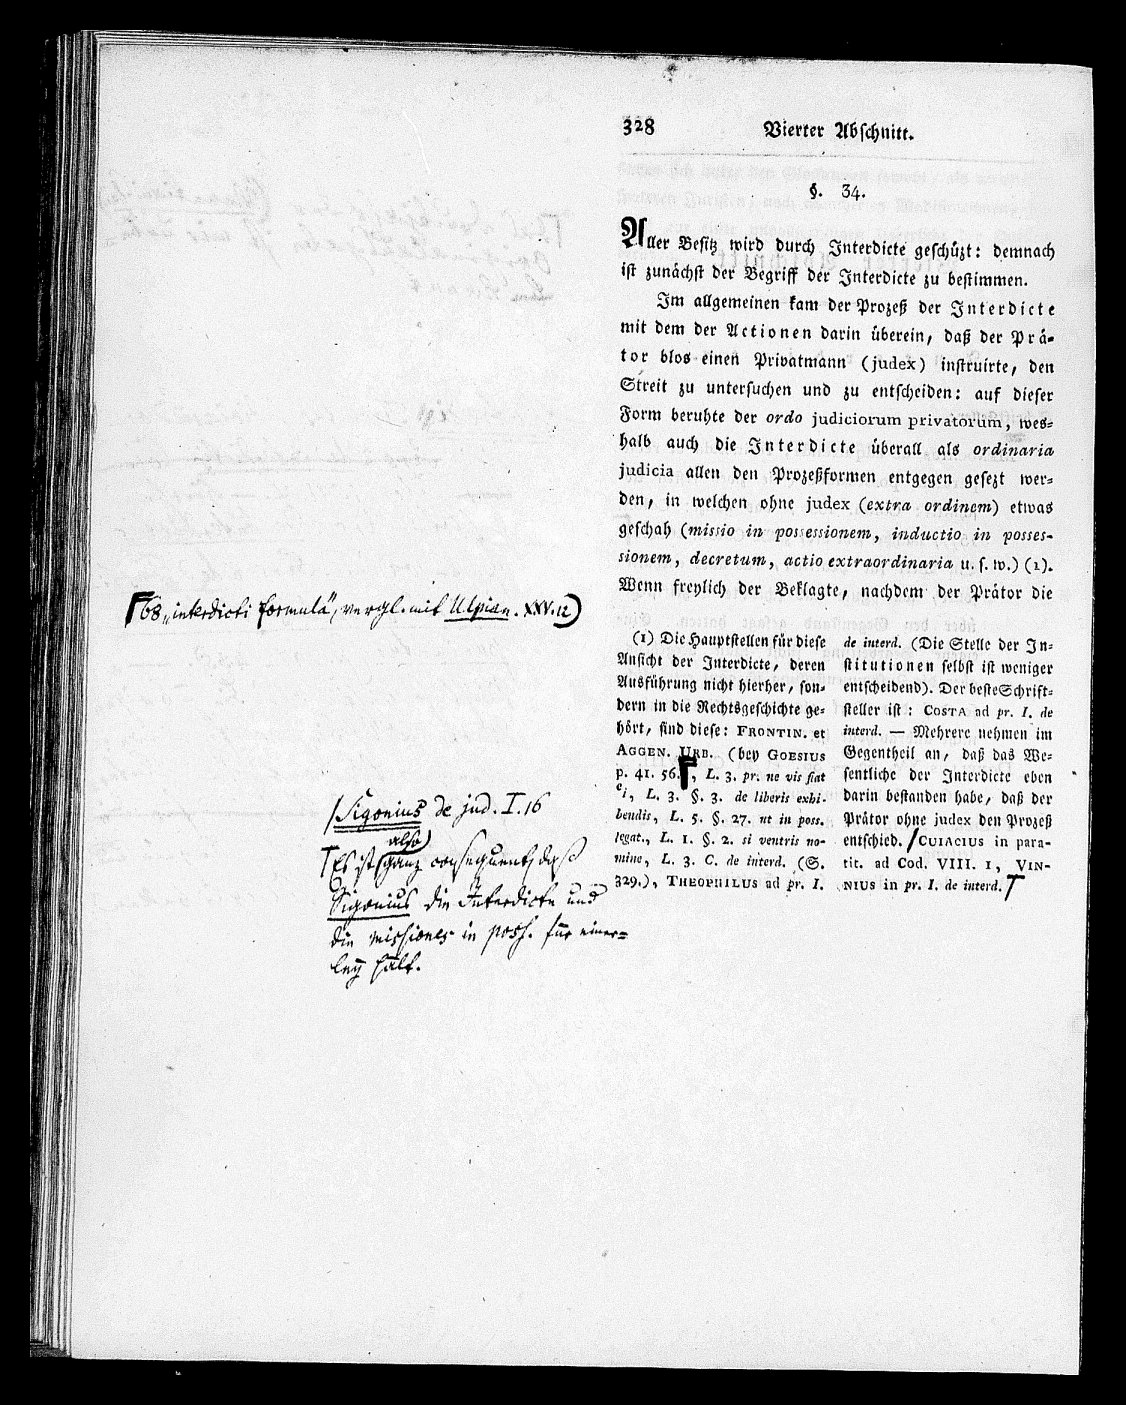 328 Vierter Abschnitt.
§. 34.
Aller Besitz wird durch Interdicte geschüzt: demnach
ist zunächst der Begriff der Interdicte zu bestimmen.
Im allgemeinen kam der Prozeß der Interdicte
mit dem der Actionen darin überein, daß der Prä-
tor blos einen Privatmann (judex) instruirte, den
Streit zu untersuchen und zu entscheiden: auf dieser
Form beruhte der ordo judiciorum privatorum, wes-
halb auch die Interdicte überall als ordinaria
judicia allen den Prozeßformen entgegen gesezt wer-
den, in welchen ohne judex (extra ordinem) etwas
geschah (missio in possessionem, inductio in posses-
sionem, decretum, actio extraordinaria u. s. w.) (1).
Wenn freylich der Beklagte, nachdem der Prätor die
(1) Die Hauptstellen für diese
Ansicht der Interdicte, deren
Ausführung nicht hierher, son-
dern in die Rechtsgeschichte ge-
hört, sind diese: FRONTIN. et
AGGEN. URB. (bey GOESIUS
p. 41. 56.⌈, L. 3. pr. ne vis fiat
ei, L. 3. §. 3. de liberis exhi-
bendis, L. 5. §. 27. ut in poss.
legat., L. 1. §. 2. si ventris no-
mine, L. 3. C. de interd. (S.
329.), THEOPHILUS ad pr. I.
de interd. (Die Stelle der In-
stitutionen selbst ist weniger
entscheidend). Der beste Schrift-
steller ist: COSTA ad pr. I. de
interd. — Mehrere nehmen im
Gegentheil an, daß das We-
sentliche der Interdicte eben
darin bestanden habe, daß der
Prätor ohne judex den Prozeß
entschied. /CUIACIUS in para-
tit. ad Cod. VIII. 1, VIN-
NIUS in pr. I. de interd.⊤
⌈68 „interdicti formula“, vergl. mit Ulpian. XXV. 12)
/Sigonius de jud. I. 16
also
⊤Es ist ganz consequent, daß
Sigonius die Interdicte und
die missiones in poss. für einer=
ley hält.